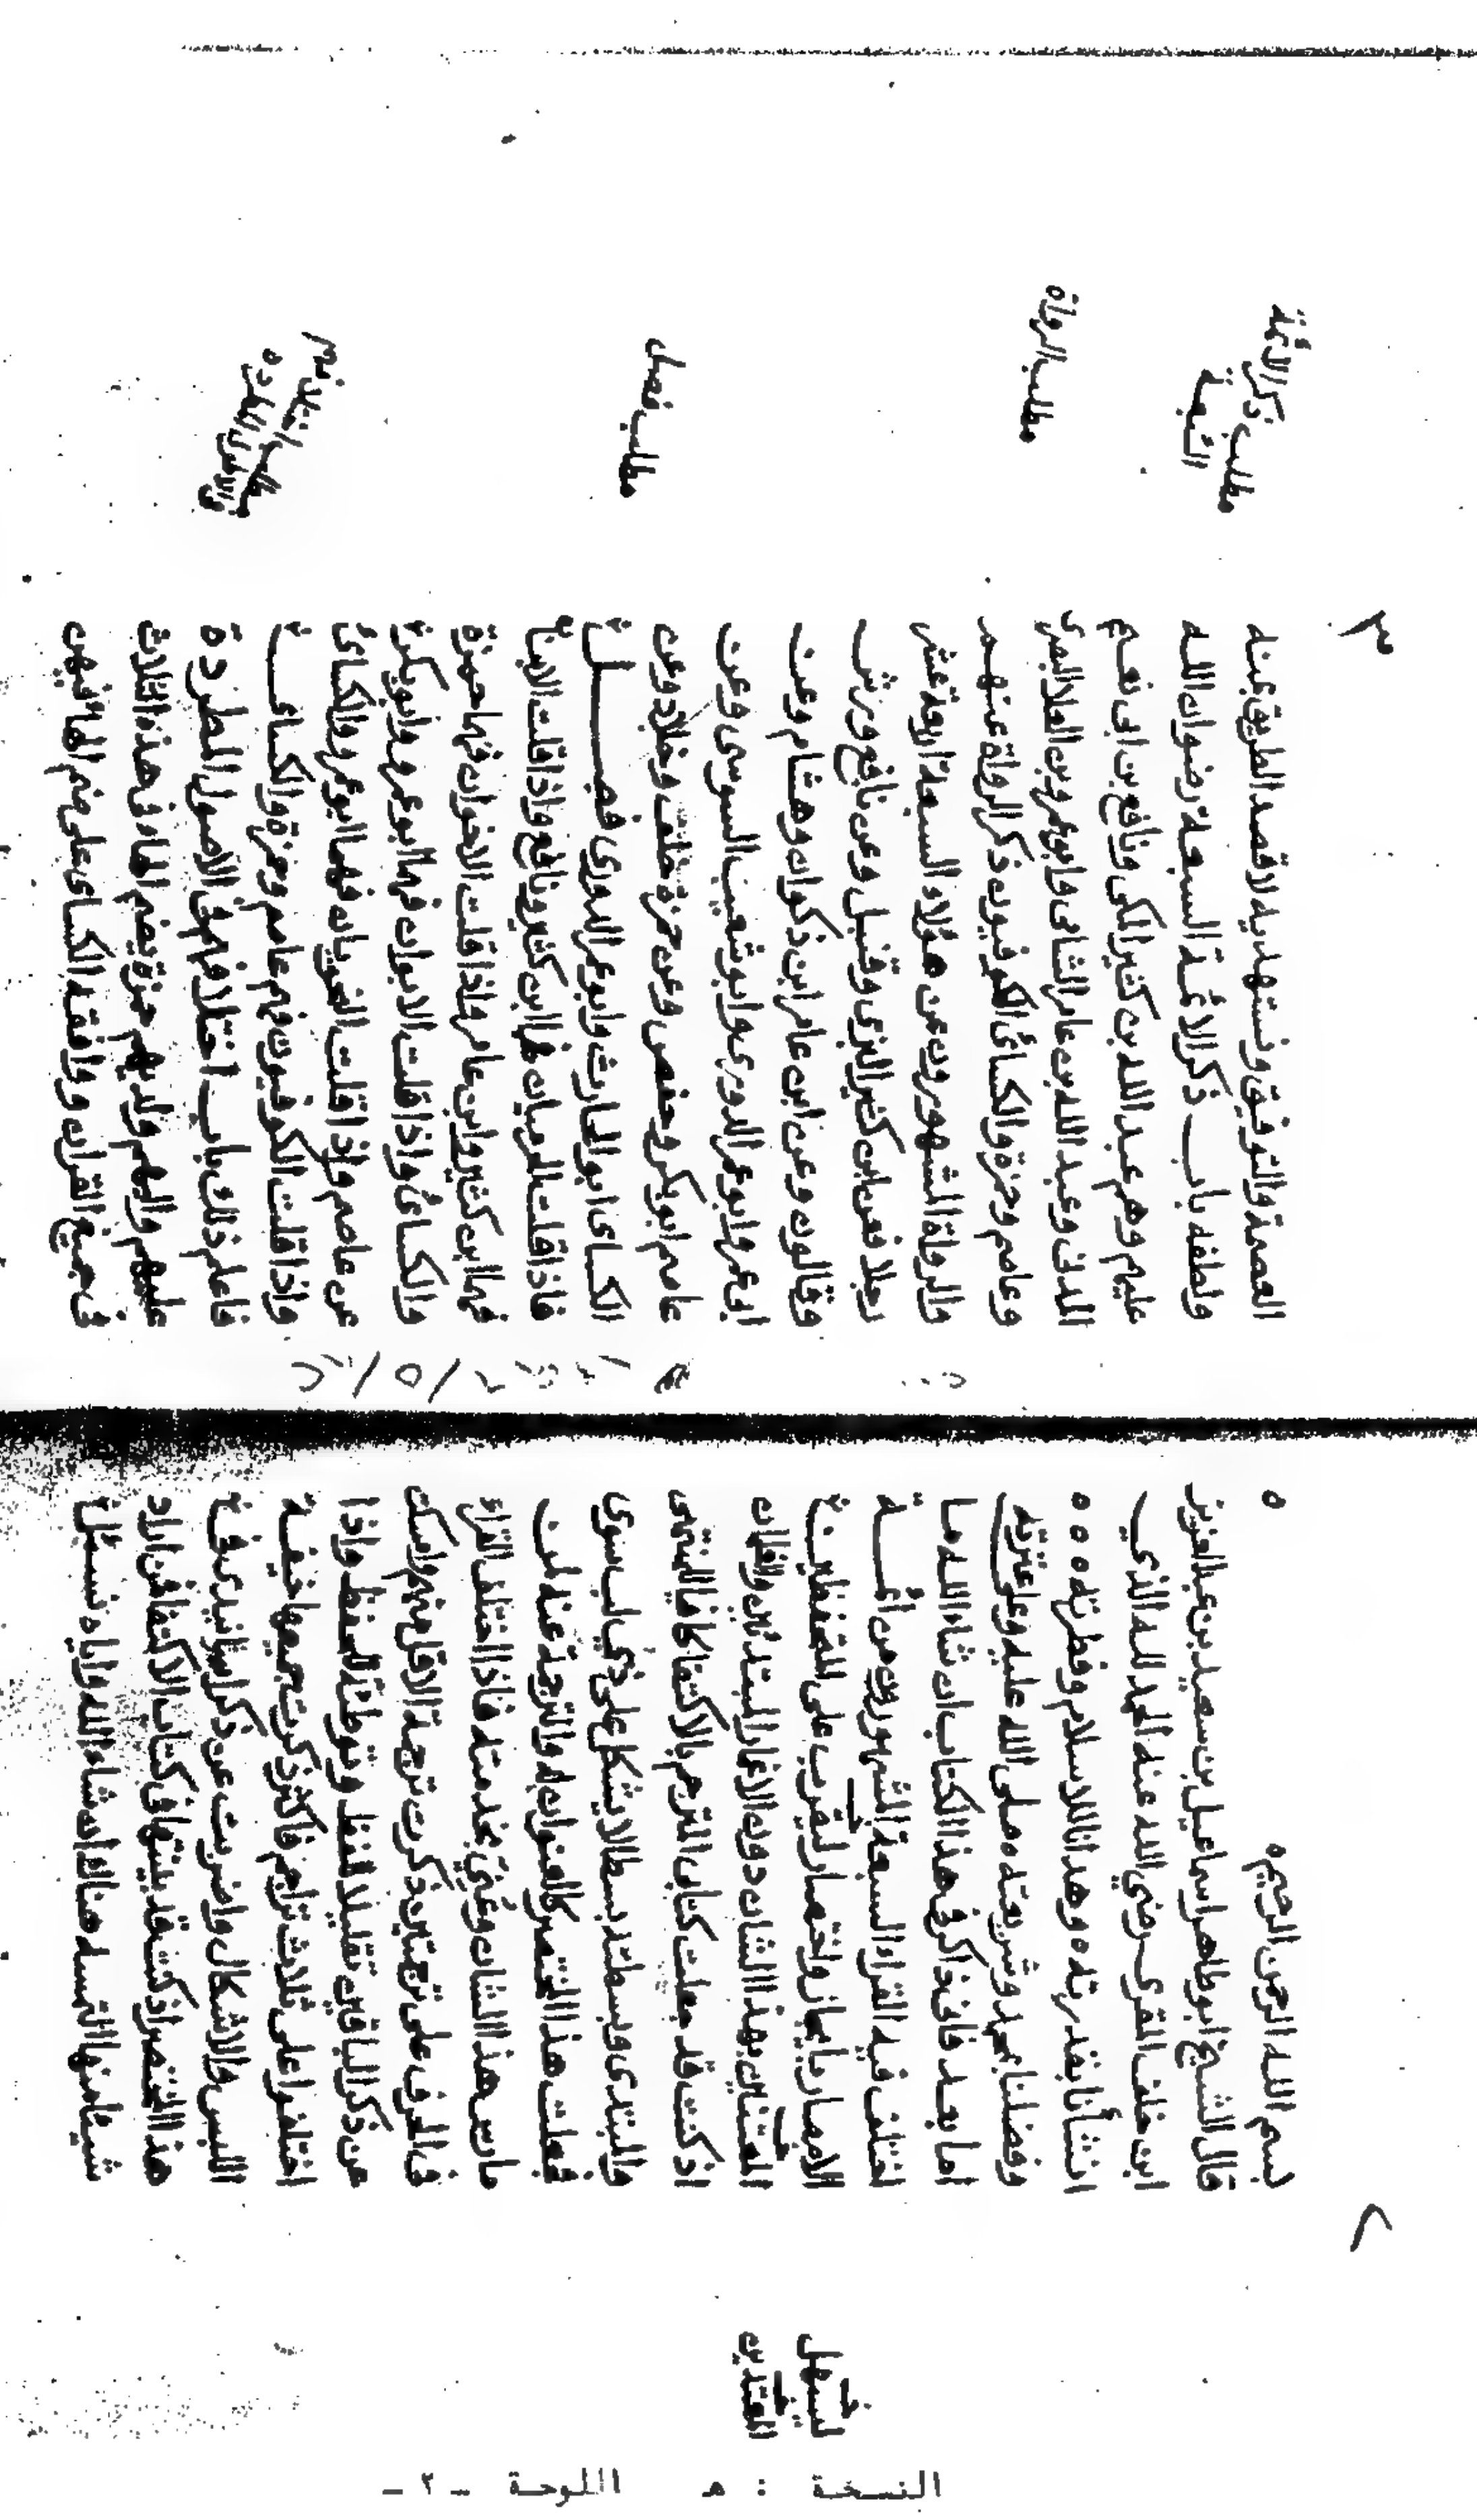 بسم الله الرحمن الرحيم ه
قال الشيخ ابو طاهر اسماعيل بن سعيد بن عبد العزيز
ابن خلف المقري رضي الله عنه الحمد لله الذي
انشأنا بقدرته وهدانا للاسلام وفطرته ه ه ه
وفضلنا بمحمد وشرعته صلى الله عليه وعلى عترته
اما بعد فاني ذاكر في هذا الكتاب ان شاء الله ما
اختلف فيه القراء السبعة المشهورون من ائمـة
الامصار بايجاز واختصار ليقرب على المتحفظين
المعتنين بهذا الشان دون الاغمار المبتدئين
اذ كنت قد جعلت كتاب المترجم بالاكتفا كافيا للمنتهي
والمبتدي وبسطته بسطا لا يشكل على ذي لب سوي
فجعلت هذا المختصر كالعنوان له والترجمة عنه لمن
مارس هذا الشان وعني بمثله فاذا اختلف القراء
في الحرف على ترجمتين ذكرت ترجمة الاقل منهم وامسكت
عن ذكر الباقين تقليلا للفظ وتوطئة للحفظ واذا
اختلفوا على ثلاث تراجم فاكثر ذكرت جميعها خيفة
اللبس والاشكال واضربت عن ذكر اسانيدي في
هذا المختصر اذ كنت قد بينتها في كتاب الاكتفا فمن اراد
شيئا منها التمسه هناك ان شاء الله واياه نسئل
٢
٣
العصمة والتوفيق ونستهديه لاقصد الطريق بمنه
ولطفه باب ذكر الائمة السبعة رضوان الله
عليهم وهم عبد الله بن كثير المكي ونافع بن ابي نعيم
المدني وعبد الله بن عامر الشامي وابو عمرو بن العلا البصري
وعاصم وحمزة والكسائي الكوفيون ذكر الرواة عنهم
والرواة المشهورون عن هؤلاء السبعة اربعة عشر
رجلا فعن ابن كثير البزي وقنبل وعن نافع ورش
وقالون وعن ابن عامر ابن ذكوان وهشام وعن
ابي عمرو ابو عمر الدوري وابو شعيب السوسي وعن
عاصم ابو بكر وحفص وعن حمزة خلف وخلاد وعن
الكسائي ابو الحارث وابو عمر الدوري فصـل
فاذا قلت الحرميان فهما ابن كثير ونافع واذا قلت الابنان
فهما ابن كثير وابن عامر واذا قلت الاخوان فهما حمزة
والكسائي واذا قلت الابوان فهما ابو عمرو وابو بكر
عن عاصم واذا قلت النحويان فهما ابو عمرو والكسائي
واذا قلت الكوفيون فهم عاصم وحمزة والكسائي
فاعلم ذلك باب اختلافهم في الاصول المطردة
عليهم واليهم ولديهم حمزة بضم الهاء في هذه الثلاث
في جميع القرآن ووافقه الكسائي على ضم الهاء فيهن
مطلب ذكر الائمة
السبعة
مطلب الرواة
مطلب فصل
النسخة : هـ اللوحة -٢-